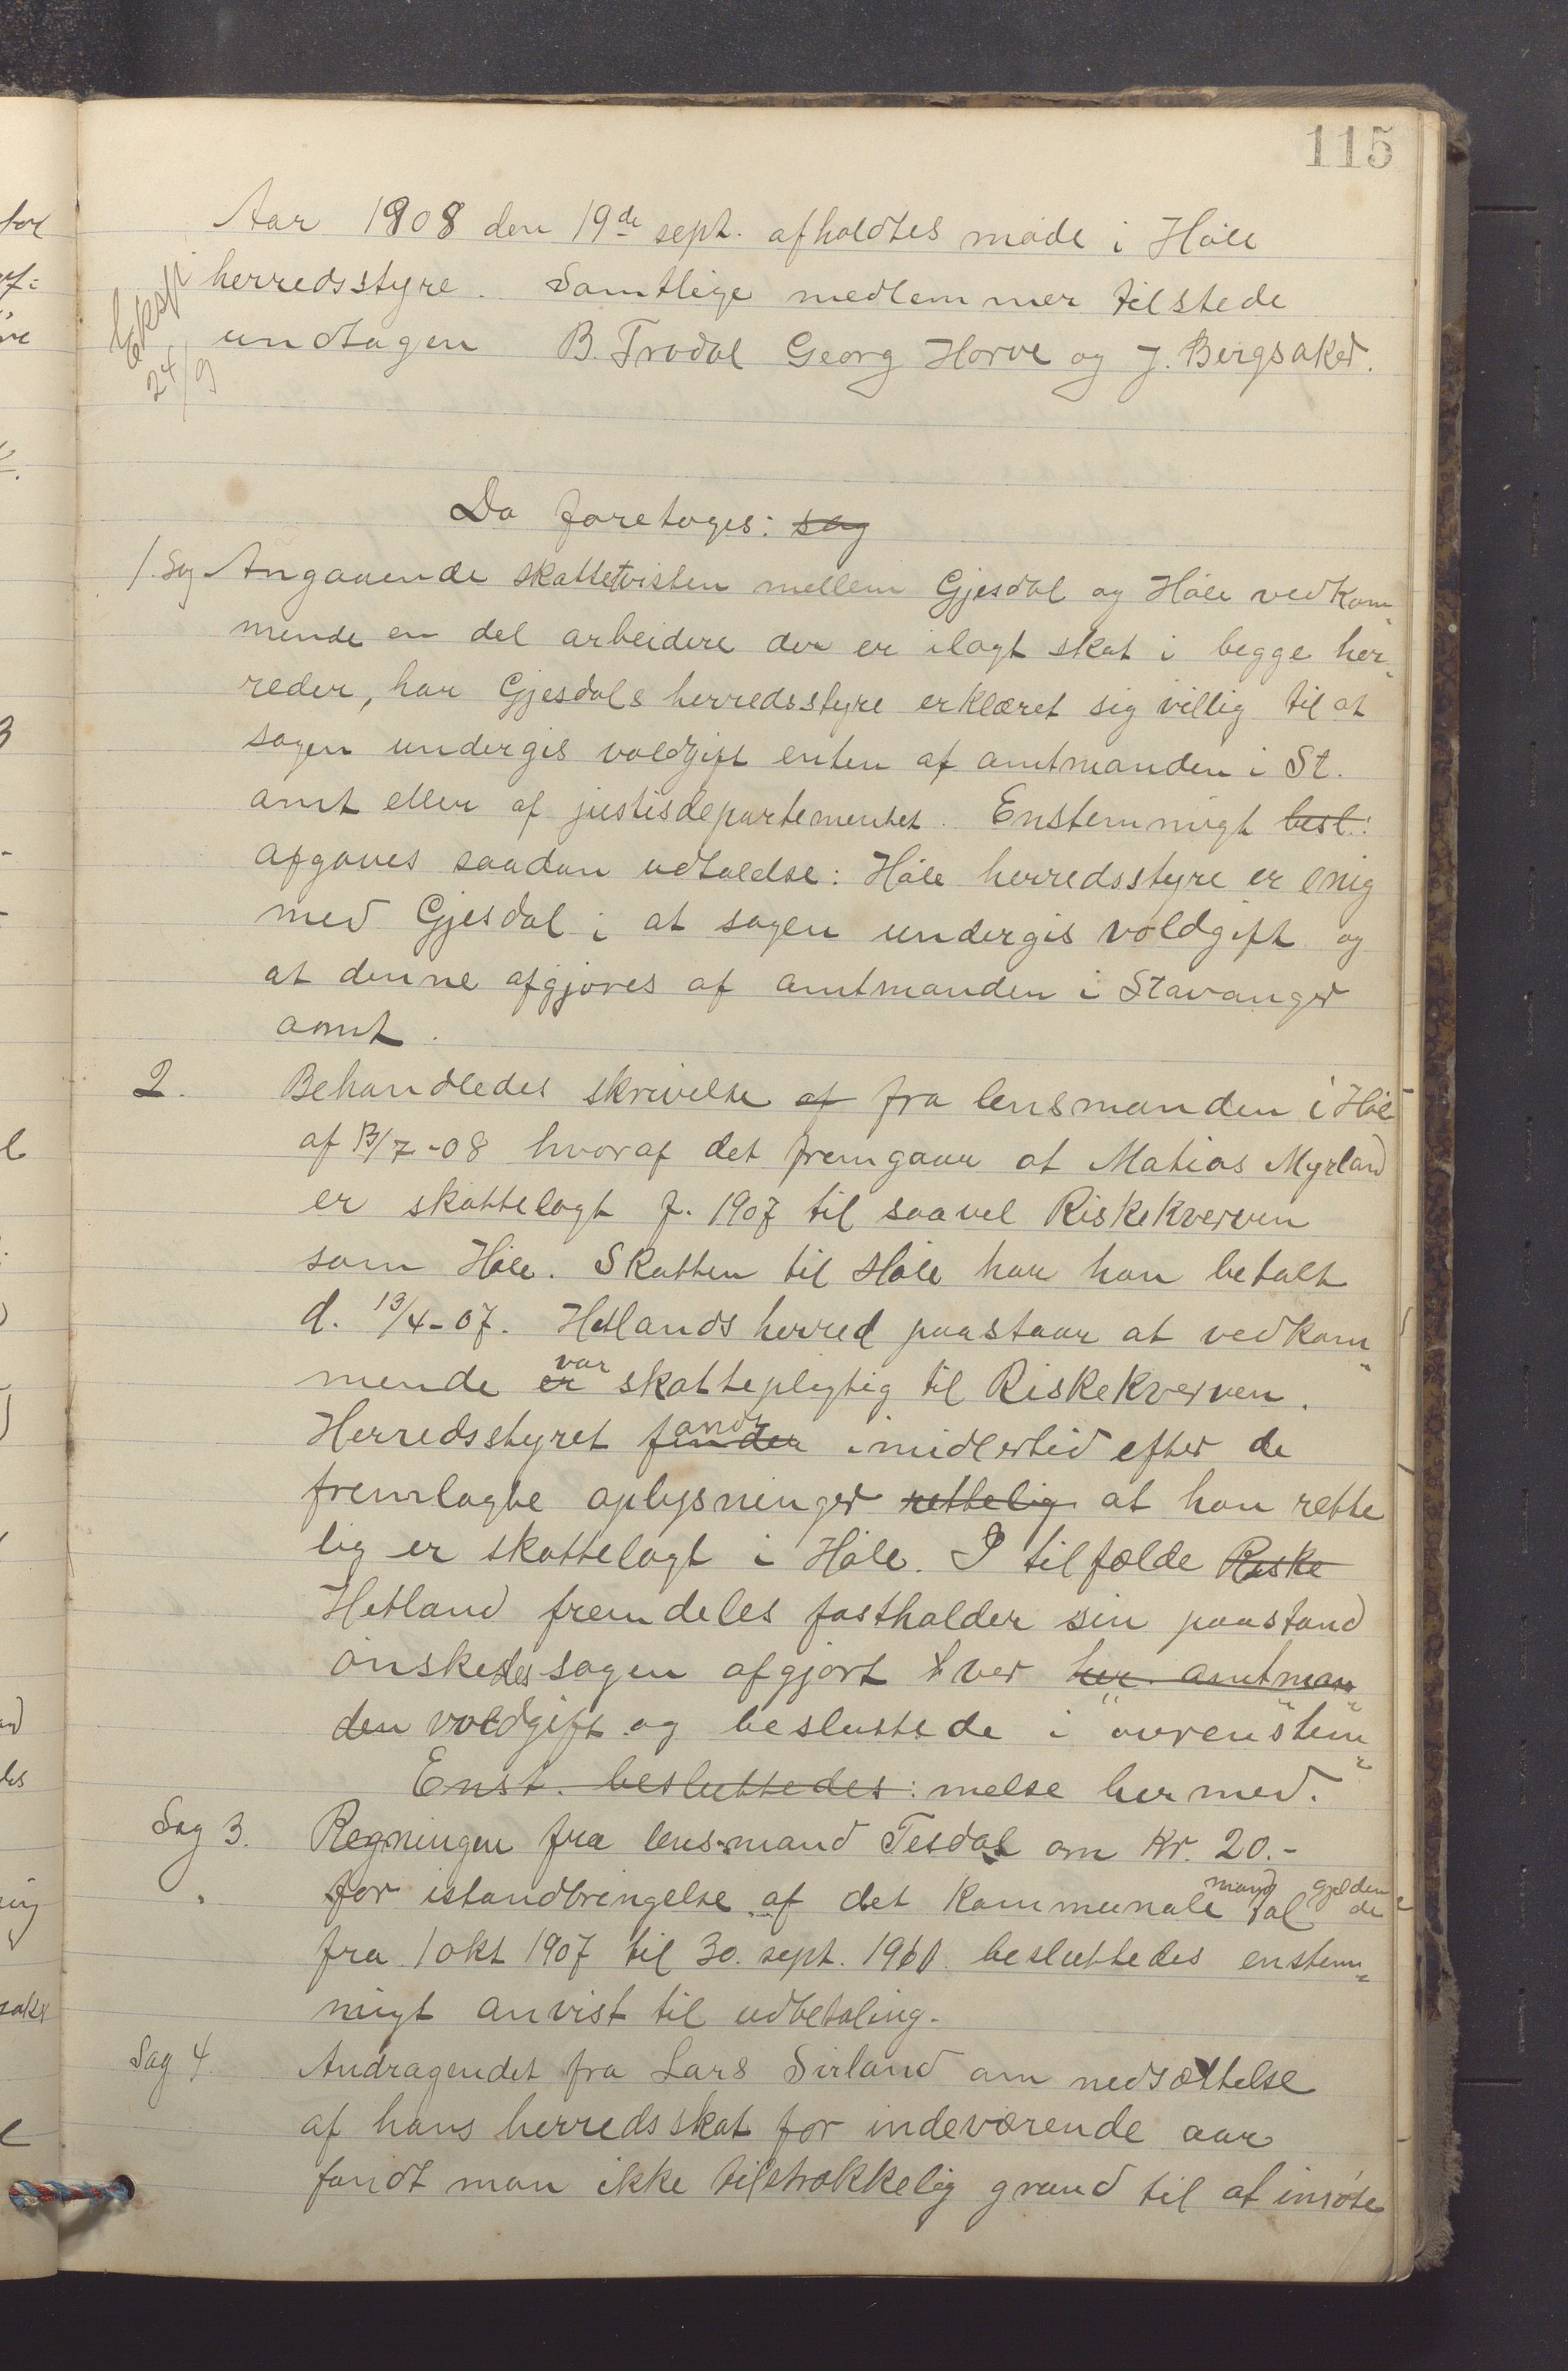 115
Aar 1908 den 19de sept. afholdtes møde i Høle
herredsstyre. Samtlige medlemmer tilstede
undtagen B. Trodal Georg Horve og J. Bergsaker.
Eksp
24/9
Da foretoges: sag
1. Sag Angaaende skattetvisten mellem Gjesdal og Høle vedkom„
mende en del arbeidere der er ilagt skat i begge her„
reder, har Gjesdals herredsstyre erklæret sig villig til at
sagen undergis voldgift enten af amtmanden i St.
amt eller af justisdepartementet. Enstemmigt besl.:
afgaves saadan udtalelse: Høle herredsstyre er enig
med Gjesdal i at sagen undergis voldgift og
at denne afgjøres af amtmanden i Stavanger
amt.
2. Behandledes skrivelse af fra lensmanden i Høle
af 13/7-08 hvoraf det fremgaar at Matias Myrland
er skattelagt f. 1907 til saavel Riskekverven
som Høle. Skatten til Høle har han betalt
d. 13/4-07. Hetlands herred paastaar at vedkom„
mende er var skattepligtig til Riskekverven.
Herredsstyret finder fandt imidlertid efter de
fremlagte oplysninger rettelig at han rette
lig er skattelagt i Høle. I tilfælde Riske
Hetland fremdeles fastholder sin paastand
ønskedes sagen afgjort ved her amtman„
den voldgift og besluttede i overenstem„
Enst. besluttedes: melse hermed.
Sag 3. Regningen fra lensmand Tesdal om Kr. 20.-
for istandbringelse af det kommunale mandtal gjeldende
fra 1 okt 1907 til 30. sept. 1910 besluttedes enstem„
migt anvist til udbetaling.
Sag 4. Andragendet fra Lars Sirland om nedsættelse
af hans herredsskat for indeværende aar
fandt man ikke tilstrækkelig grund til at